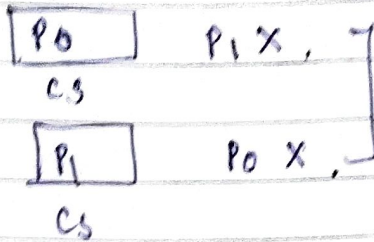 P0 P1 X,
CS
P1 P0 X,
CS